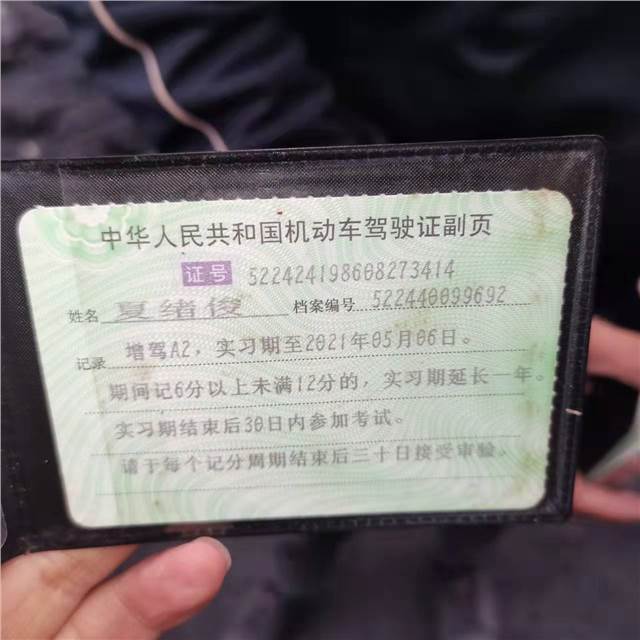 中华人民共和国机动车驾驶证副页
证号 522424198608273414
姓名 夏绪俊 档案编号 522440099692
记录 增驾A2，实习期至2021年05月06日。
期间记6分以上未满12分的，实习期延长一年。
实习期结束后30日内参加考试。
请于每个记分周期结束后三十日接受审验。